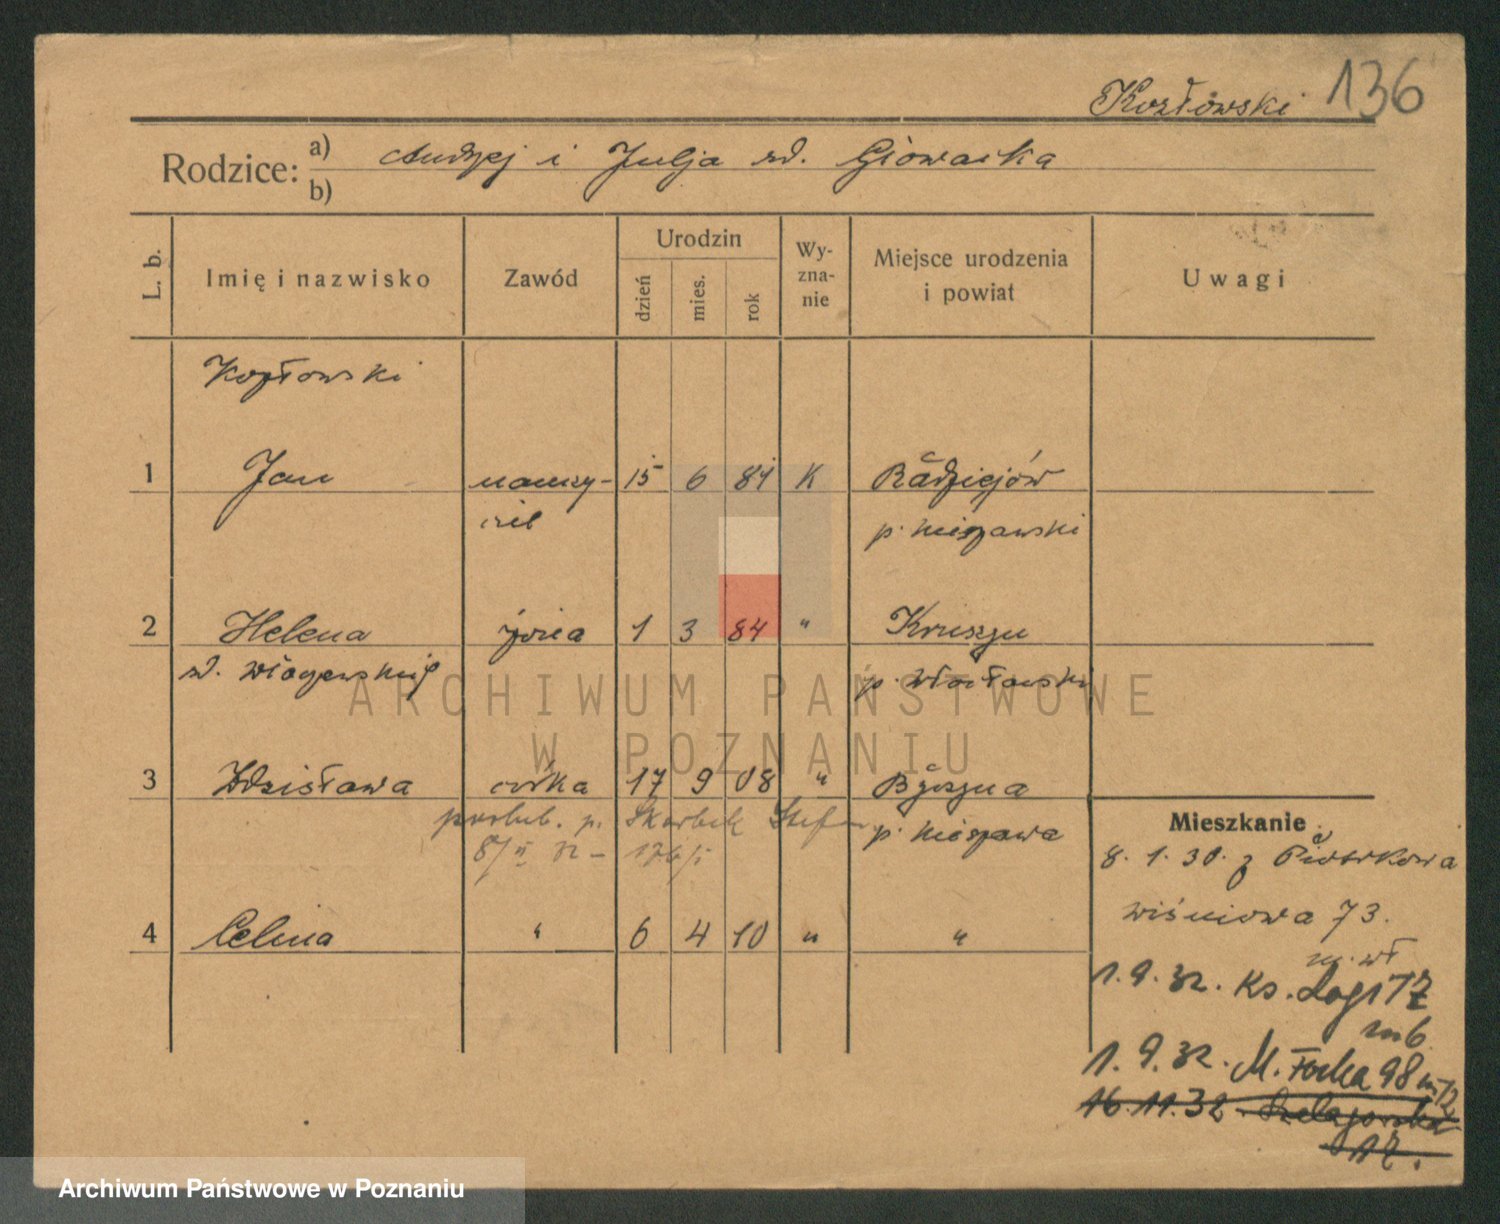 Kozłowski 136
Rodzice: a) Andrzej i Julja zd. Głowacka
b)
L. b. Imię i nazwisko Zawód Urodzin dzień mies. rok Wyznanie Miejsce urodzenia i powiat Uwagi
Kozłowski
1 Jan nauczy- 15 6 84 K Radziejów
ciel p. nieszawski
2 Helena żona 1 3 84 " Kruszyn
zd. p. włocławski
3 Zdzisława córka 17 9 08 " Byczyna
poślub. p. Skarbek Stefan p. nieszawa
8/II 32 - 176/I
4 Celina " 6 4 10 " "
Mieszkanie
8. 1. 30. z Piotrkowa
wiśniowa 73.
m. wł
1. 9. 32. Ks.
m 6
1. 9. 32. M. Focha 98 m 12
16.11.32
12.
ARCHIWUM PAŃSTWOWE
W POZNANIU
Archiwum Państwowe w Poznaniu